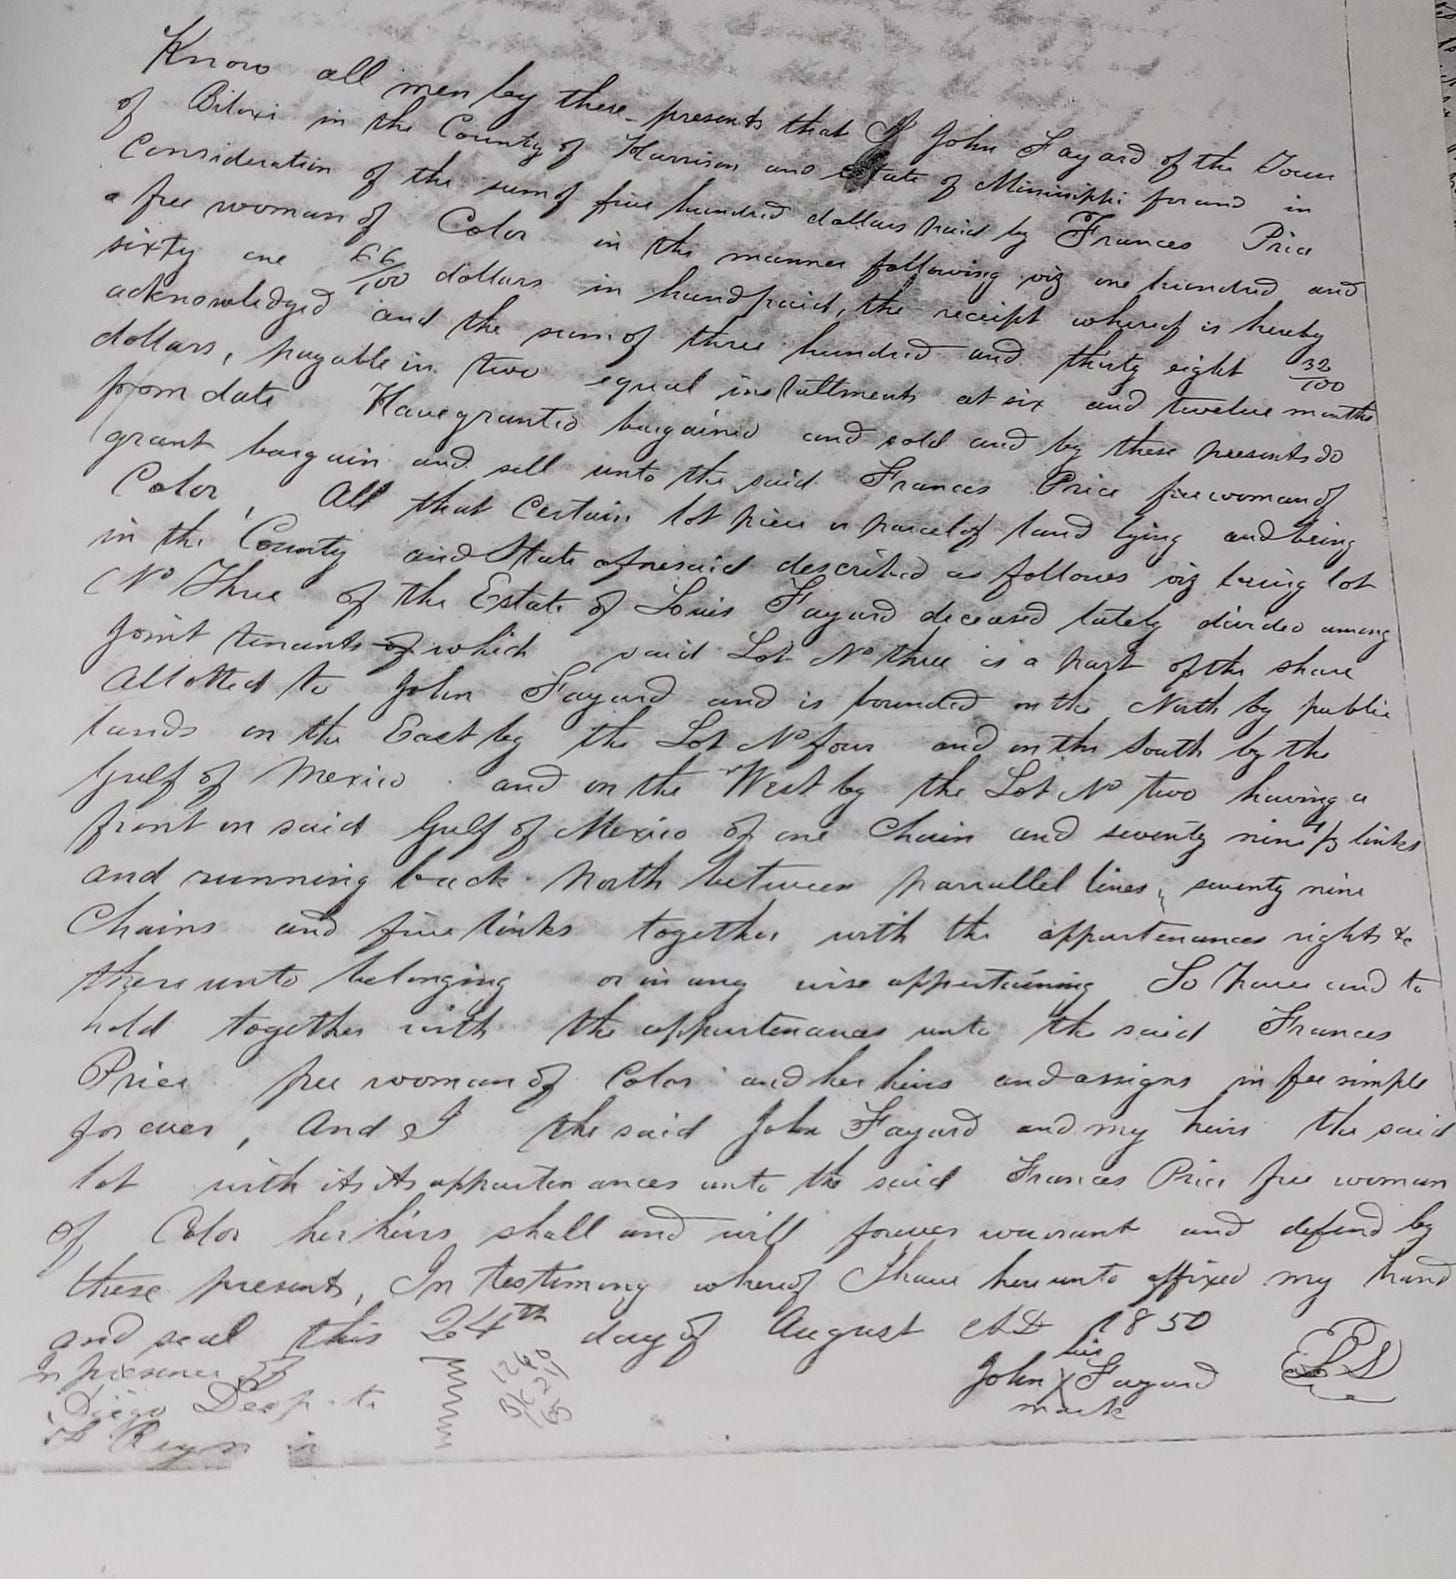 Know all men by these presents that I John Fayard of the Town
of Biloxi in the County of Harrison and State of Mississippi for and in
Consideration of the sum of five hundred dollars paid by Frances Price
a free woman of Color in the manner following viz one hundred and
sixty one 66/100 dollars in hand paid, the receipt whereof is hereby
acknowledged and the sum of three hundred and thirty eight 32/100
dollars, payable in two equal installments at six and twelve months
from date Have granted bargained and sold and by these presents do
grant bargain and sell unto the said Frances Price free woman of
Color, All that Certain lot piece or parcel of land lying and being
in the County and State aforesaid described as follows viz being lot
No Three of the Estate of Louis Fayard deceased lately divided among
joint tenants of which said Lot No three is a part of the share
Allotted to John Fayard and is bounded on the North by public
lands on the East by the Lot No four and on the South by the
Gulf of Mexico and on the West by the Lot No two having a
front on said Gulf of Mexico of one Chain and seventy nine links
and running back North between parrallel lines, seventy nine
Chains and five links together with the appurtenances rights &c
there unto belonging or in any wise appertaining To have and to
hold together with the appurtenances unto the said Frances
Price free woman of Color and her heirs and assigns in fee simple
for ever, And I the said John Fayard and my heirs the said
lot with its its appurtenances unto the said Frances Price free woman
of Color her heirs shall and will forever warrant and defend by
these present, In testimony whereof I have here unto affixed my hand
and seal this 24th day of August AD 1850
In presence of
his
John X Fayard
mark
Diego